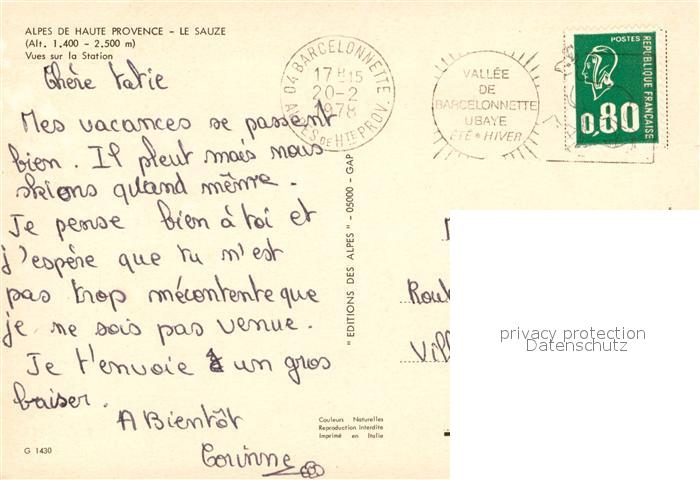 ALPES DE HAUTE PROVENCE - LE SAUZE
(Alt. 1.400 - 2.500 m)
Vues sur la Station
Chère tatie
Mes vacances se passent
bien. Il pleut mais nous
skions quand même.
Je pense bien à toi et
j'espère que tu n'est
pas trop mécontente que
je ne sois pas venue.
Je t'envoie un gros
baiser.
A Bientôt
Corinne
G 1430
04 BARCELONNETTE
17 H 15
20-2
1978
ALPES DE Hte PROV.
VALLÉE
DE
BARCELONNETTE
UBAYE
ÉTÉ * HIVER
POSTES
RÉPUBLIQUE FRANÇAISE
0,80
"EDITIONS DES ALPES" - 05000 - GAP
Rout
Vill
privacy protection
Datenschutz
Couleurs Naturelles
Reproduction interdite
Imprimé en Italie